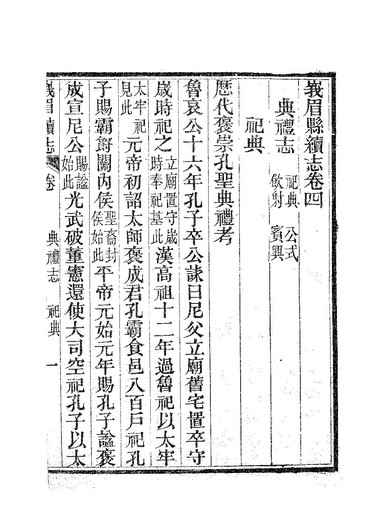 峩眉縣續志卷四
典禮志 祀典 公式
飲射 賓興
祀典
歷代褒崇孔聖典禮考
魯哀公十六年孔子卒公誄曰尼父立廟舊宅置卒守
歲時祀之立廟置守歲時奉祀基此漢高祖十二年過魯祀以太牢
太牢祀見此元帝初詔太師褒成君孔霸食邑八百戶祀孔
子賜霸爵關內侯聖裔封侯始此平帝元始元年賜孔子謚褒
成宣尼公賜謚始此光武破董憲還使大司空祀孔子以太
峩眉續志 卷 典禮志 祀典 一